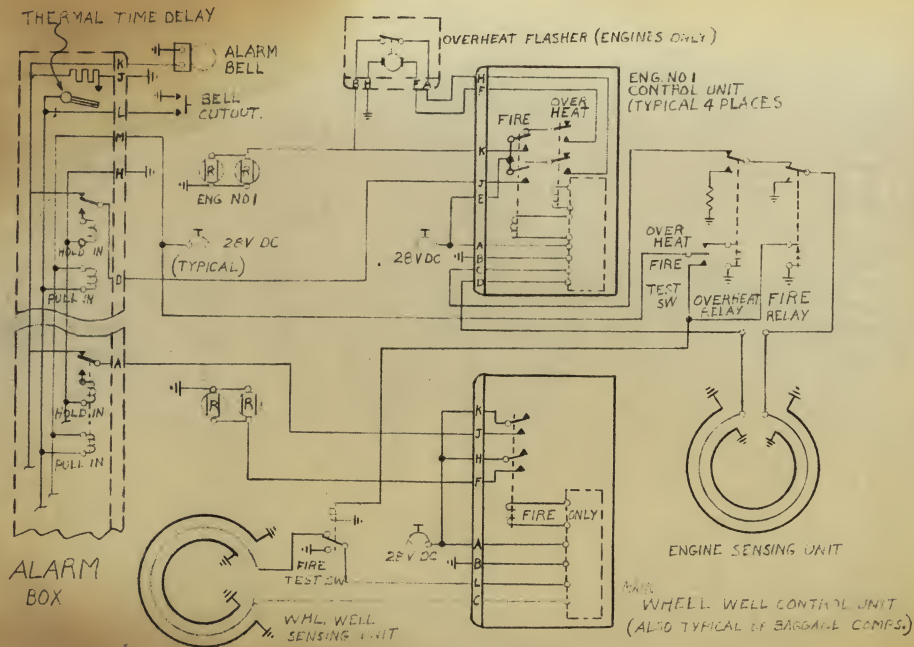 THERMAL TIME DELAY
K
J
L
M
H
D
A
ALARM
BELL
BELL
CUTOUT.
HOLD IN
PULL IN
HOLD IN
PULL IN
ALARM
BOX
R R
ENG NO1
28V DC
(TYPICAL)
R R
OVERHEAT FLASHER (ENGINES ONLY)
B H F A
H
F
K
J
E
A
B
C
D
FIRE
OVER
HEAT
28V DC
ENG. NO1
CONTROL UNIT
(TYPICAL 4 PLACES
OVER
HEAT
FIRE
TEST
SW
OVERHEAT
RELAY
FIRE
RELAY
ENGINE SENSING UNIT
K
J
H
F
A
B
L
C
FIRE ONLY
28V DC
FIRE
TEST SW
WHL. WELL
SENSING UNIT
MAIN
WHELL WELL CONTROL UNIT
(ALSO TYPICAL OF BAGGAGE COMPS.)